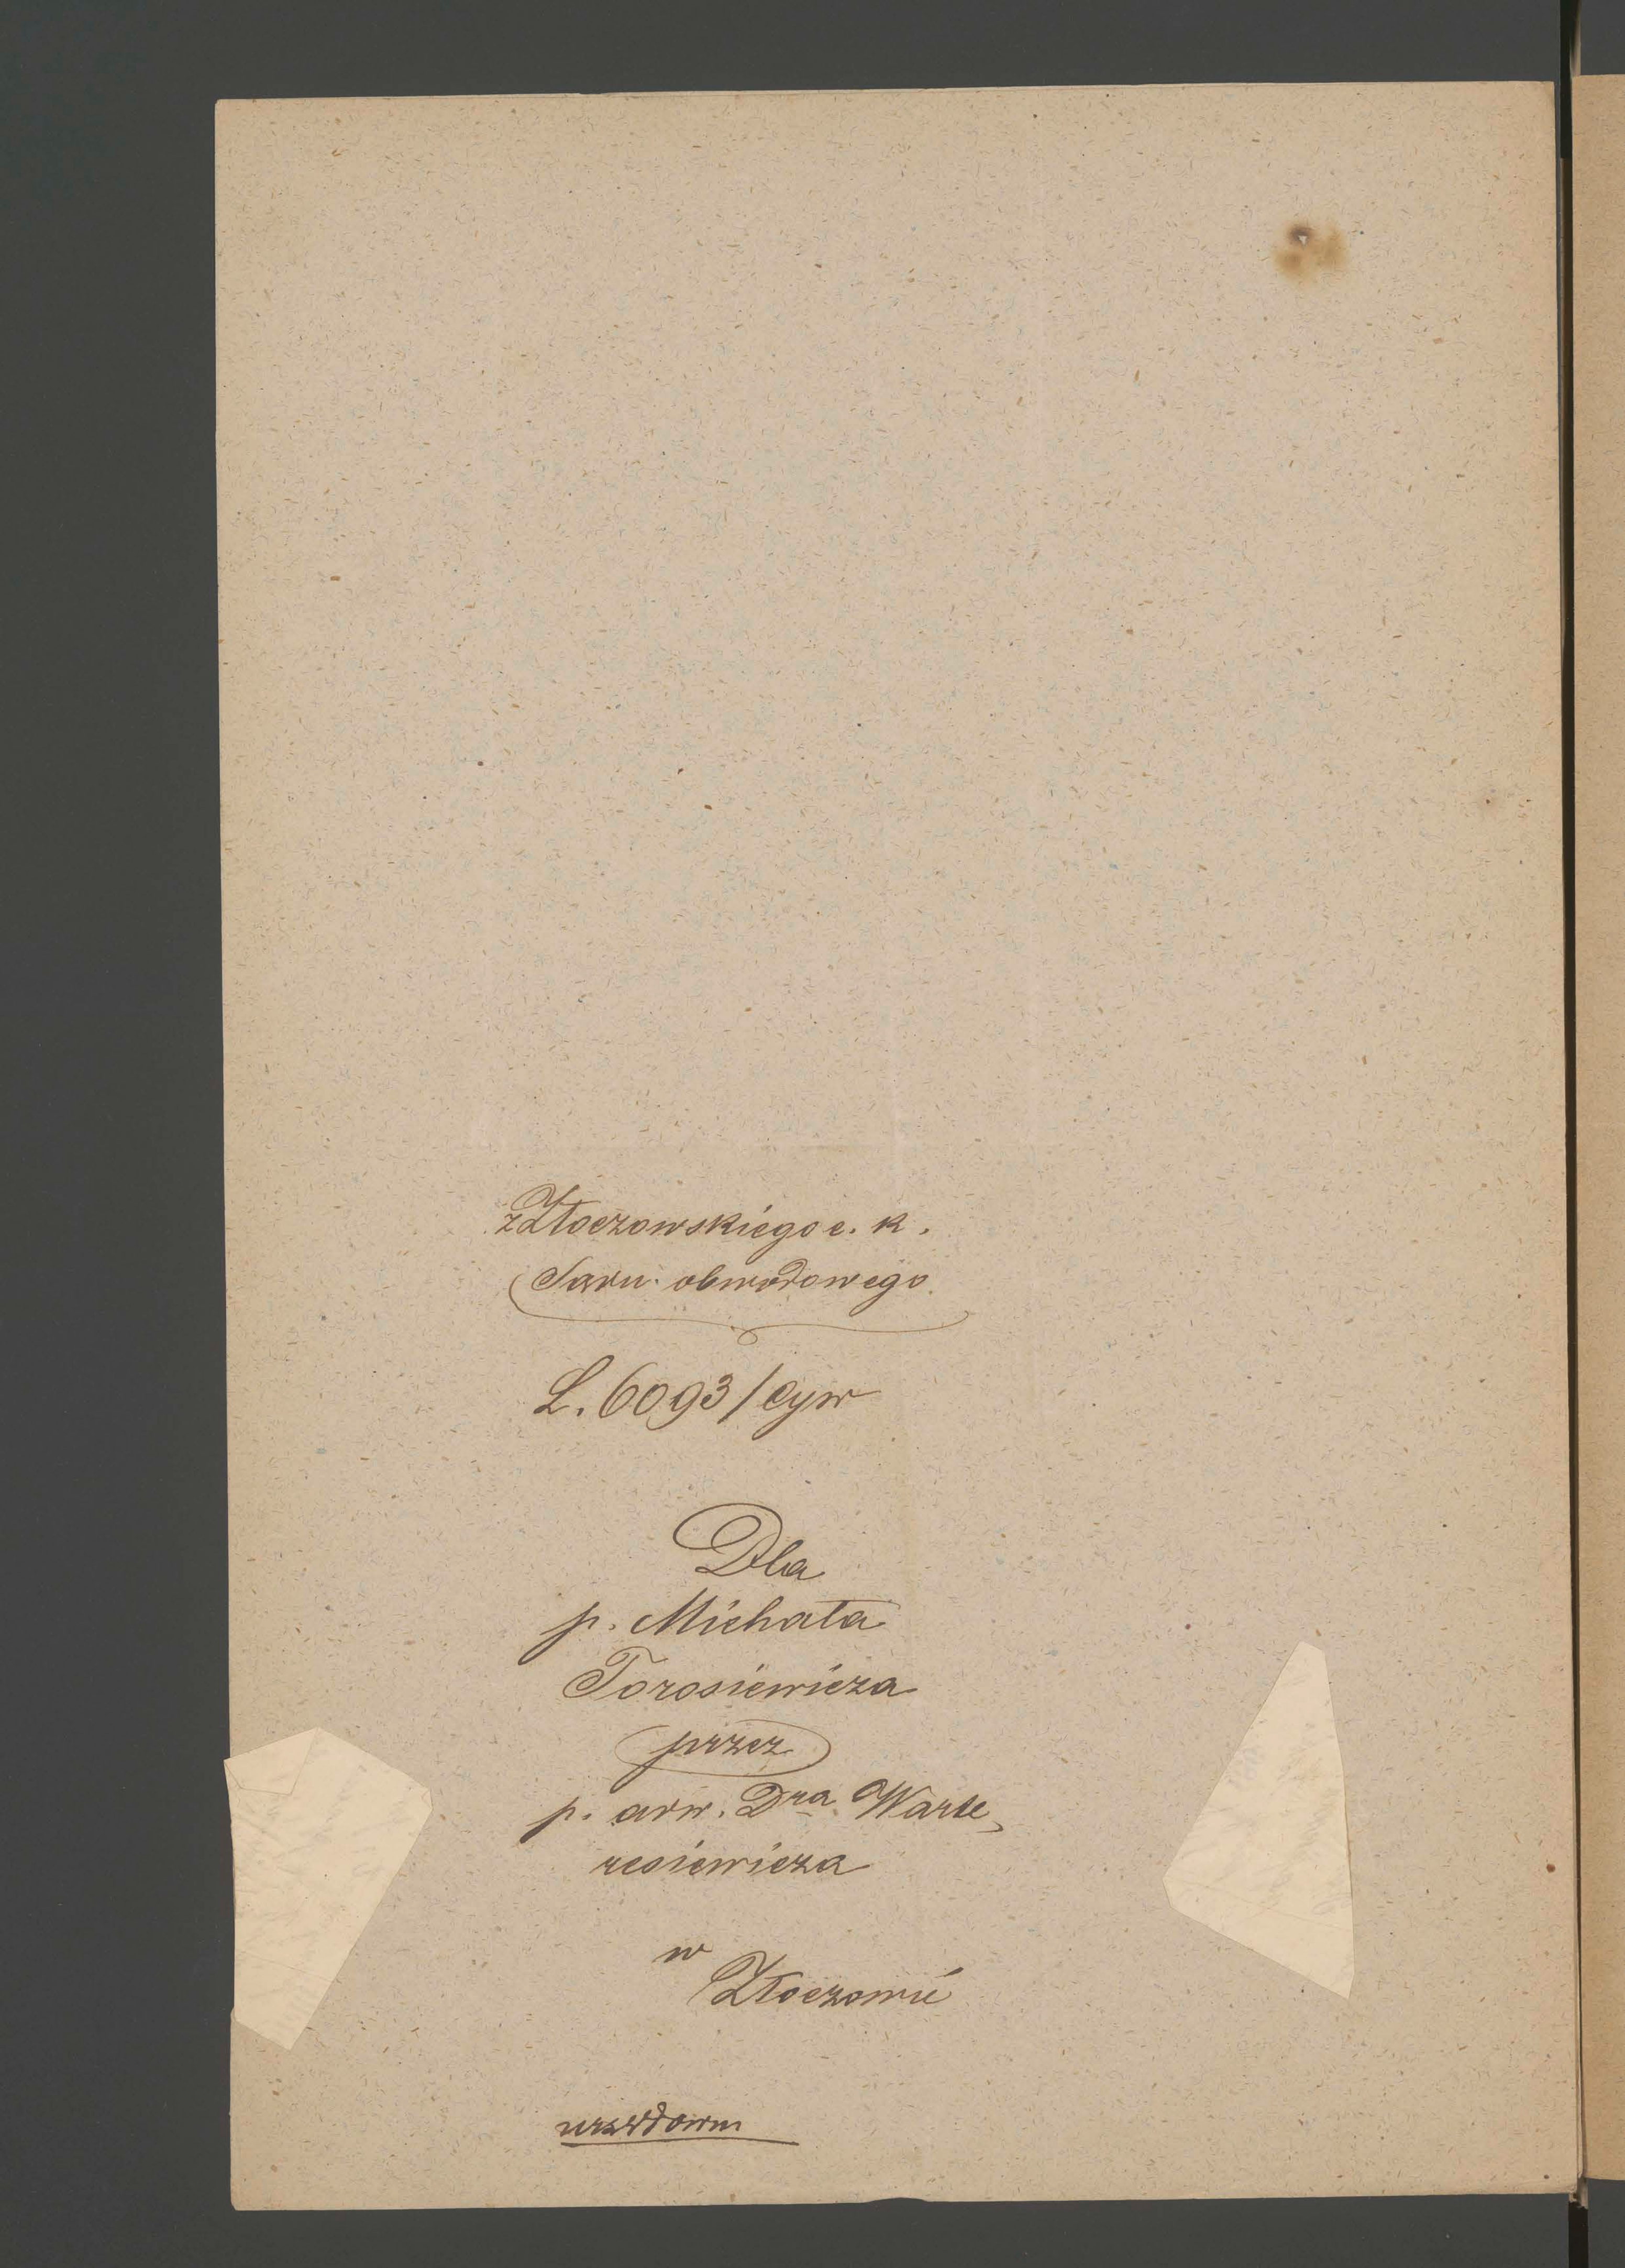 z Złoczowskiego c. k.
Sądu obwodowego.
L. 6093/cyw
Dla
p. Michała
Torosiewicza
przez
p. adw. Dra Warte-
resiewicza
w
Złoczowie